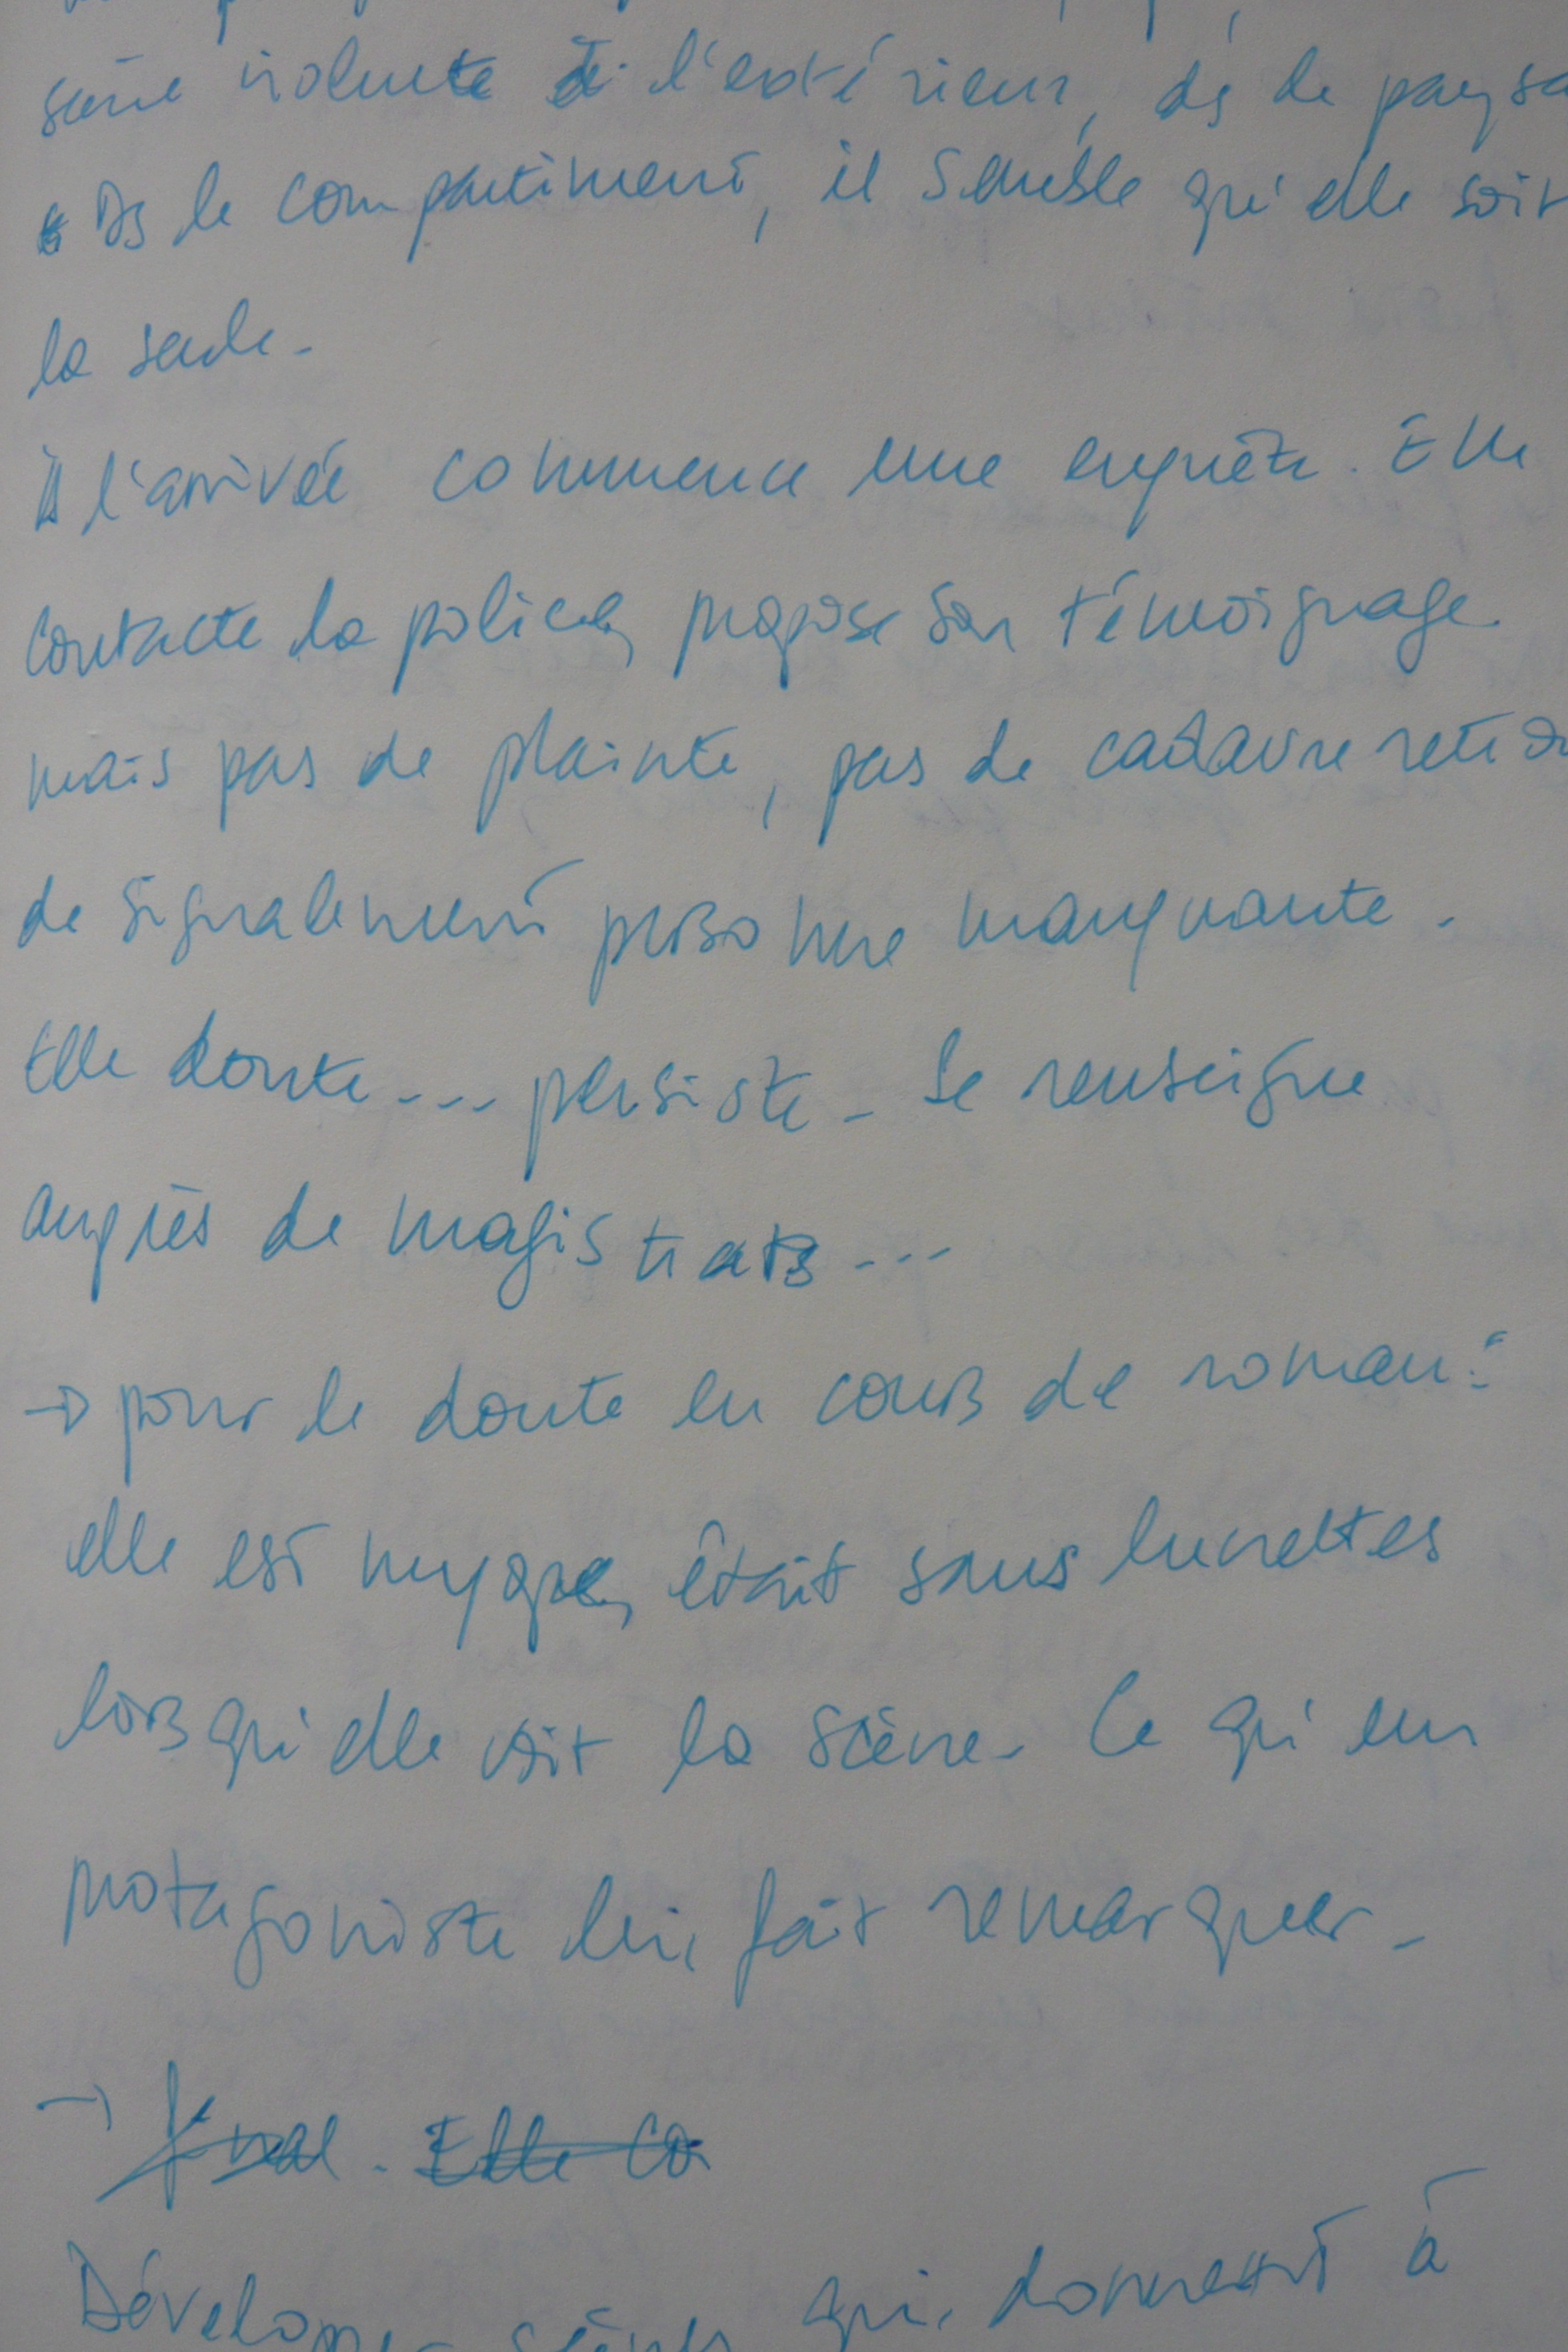 scène violente à l'extérieur, ds le paysa
Ds le compartiment, il semble qu'elle soit
la seule -
A l'arrivée commence une enquête. Elle
contacte la police, propose son témoignage
mais pas de plainte, pas de cadavre
de signalement personne manquante -
Elle doute --- persiste - Se renseigne
auprès de magistrats ---
→ pour le doute en cours de roman :
elle est myope, était sans lunettes
lorsqu'elle voit la scène - Ce qu'un
protagoniste lui fait remarquer -
→ final. Elle co
Développer scènes qui donnent à